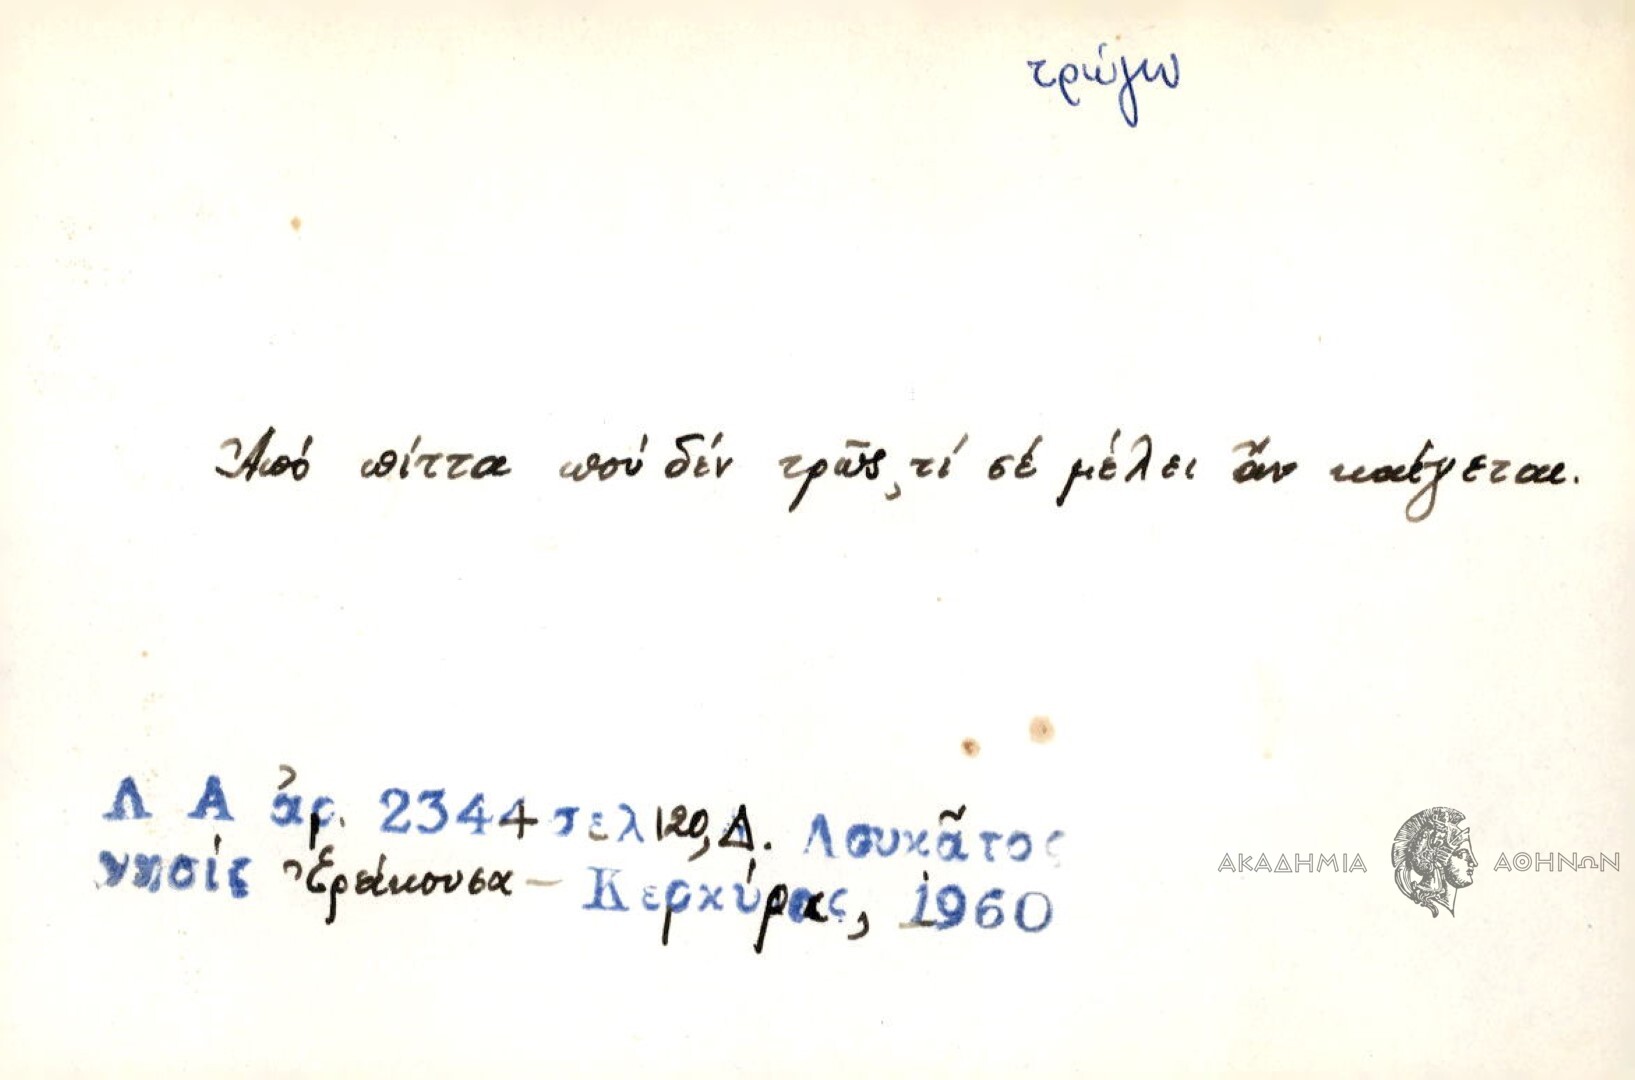 τρώγω
Ἀπό πίττα πού δέν τρῶς, τί σέ μέλει ἄν καίγεται.
Λ Α ἀρ. 2344 σελ 120, Δ. Λουκᾶτος
νησίς Ἐρείκουσα – Κερκύρας, 1960
ΑΚΑΔΗΜΙΑ ΑΘΗΝΩΝ